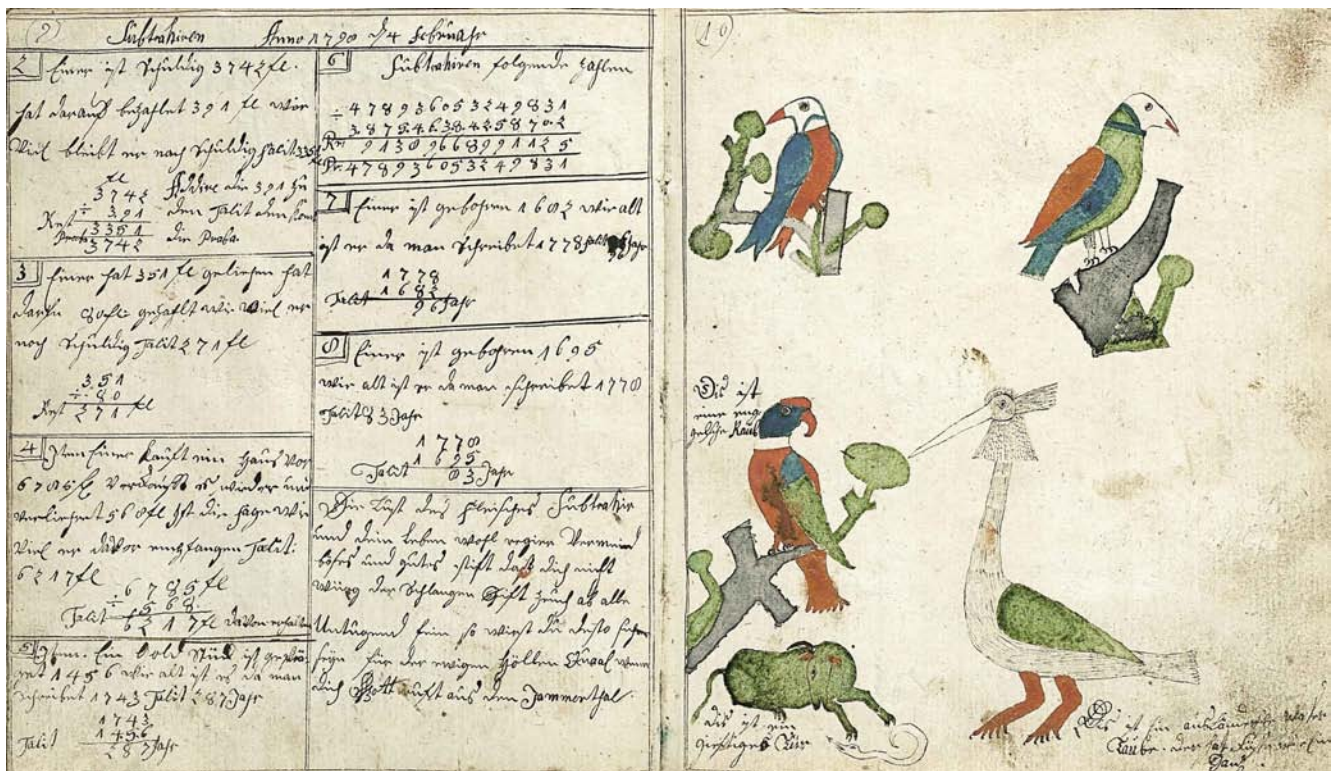 (9) Subtrahiren Anno 1790 d 4 Februahr
2 Einer ist Schuldig 3742 fl.
hat darauf bezahlet 391 fl wie
Viel bleibt er noch Schuldig facit 3351
fl
3742 Addire die 391 zu
÷ 391 den facit den kom
Rest 3351 die Proba
Proba 3742
3 Einer hat 351 fl geliehen hat
daran 80 fl. gezahlt wie Viel er
noch Schuldig facit 271 fl
351
÷ 80
Rest 271 fl
4 Item Einer kauft ein Haus vor
6785 fl Verkaufft es wieder und
verliehret 568 fl Ist die frage wie
Viel er davor empfangen facit:
6217 fl
6785 fl
÷ 568.
Facit 6217 fl davor erhalten
5 Item. Ein Gold Stück ist geprä
get 1456 wie alt ist es da man
schreibet 1743 Facit 287 Jahr
1743
1456
Facit 287 Jahr
6 Subtrahiren folgende Zahlen
÷ 478936053249831
387546384258702
Rst 91389668991125
Pr: 478936053249831
7 Einer ist gebohren 1682 wie alt
ist er da man Schreibet 1778 facit 96 Jahr
1778
1682
Facit 96 Jahr
8 Einer ist gebohren 1695
wie alt ist er da man schreibet 1778
Facit 83 Jahr
1778
1695
Facit 83 Jahr
Die Lust des fleisches Subtrahir
und dein Leben wohl regier Vermeid
böses und gutes stift daß dich nicht
würg der Schlangen Gift zeuch ab alle
Untugend fein so wirst du desto
seyn für der ewigen Höllen Quaal wenn
dich Gott ruft aus den Jammerthal.
(10)
Dis ist
eine eng
gelsche Raub
dis ist ein
gieftiges Tier
Dis ist ein ausländische
Taube. der hat Füse wie ein
Hanß.